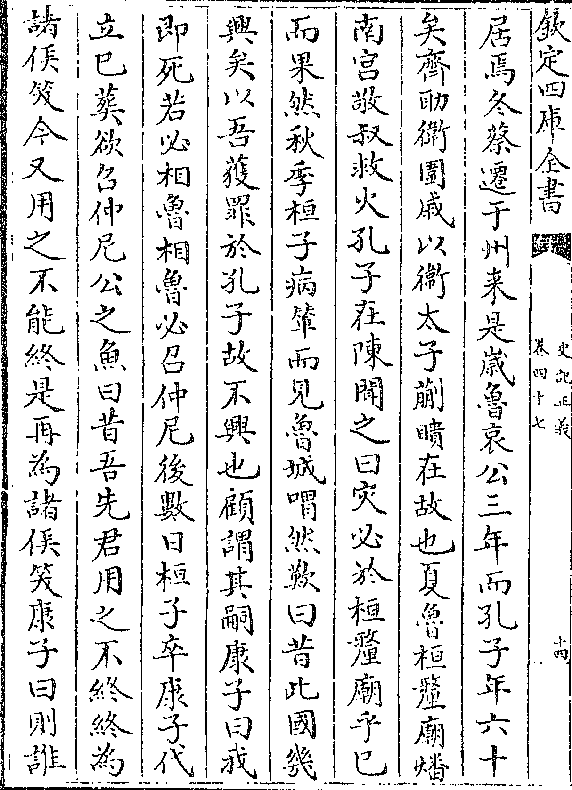 欽定四庫全書
史記正義
卷四十七
十四
居焉冬蔡遷于州来是歳魯哀公三年而孔子年六十
矣齊助衛圍戚以衞太子蒯聵在故也夏魯桓釐廟燔
南宫敬叔救火孔子在陳聞之曰灾必於桓釐廟乎已
而果然秋季桓子病輦而見魯城喟然歎曰昔此國幾
興矣以吾獲罪於孔子故不興也顧謂其嗣康子曰我
即死若必相魯相魯必召仲尼後數日桓子卒康子代
立已葬欲召仲尼公之魚曰昔吾先君用之不終終為
諸侯笑今又用之不能終是再為諸侯笑康子曰則誰